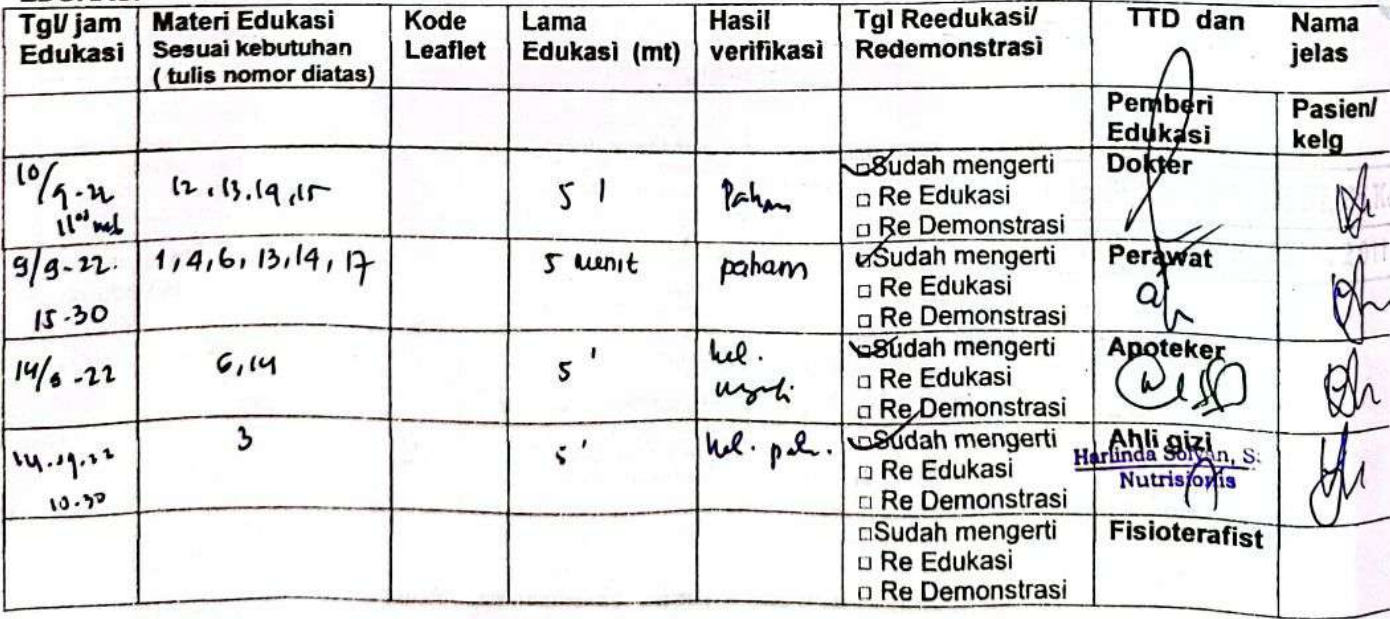 Tgl/ jam Edukasi
Materi Edukasi
Sesuai kebutuhan
( tulis nomor diatas)
Kode Leaflet
Lama Edukasi (mt)
Hasil verifikasi
Tgl Reedukasi/ Redemonstrasi
TTD dan
Nama jelas
Pemberi Edukasi
Pasien/ kelg
10/9-22
12, 13, 14, 15
5 '
Paham
□Sudah mengerti
□ Re Edukasi
□ Re Demonstrasi
Dokter
9/9-22.
15-30
1, 4, 6, 13, 14, 17
5 menit
paham
□Sudah mengerti
□ Re Edukasi
□ Re Demonstrasi
Perawat
14/9-22
6, 14
5 '
kel.
□Sudah mengerti
□ Re Edukasi
□ Re Demonstrasi
Apoteker
14.09.22
10.30
3
5 '
kel. pah.
□Sudah mengerti
□ Re Edukasi
□ Re Demonstrasi
Ahli gizi
Harlinda
Nutrisionis
□Sudah mengerti
□ Re Edukasi
□ Re Demonstrasi
Fisioterafist